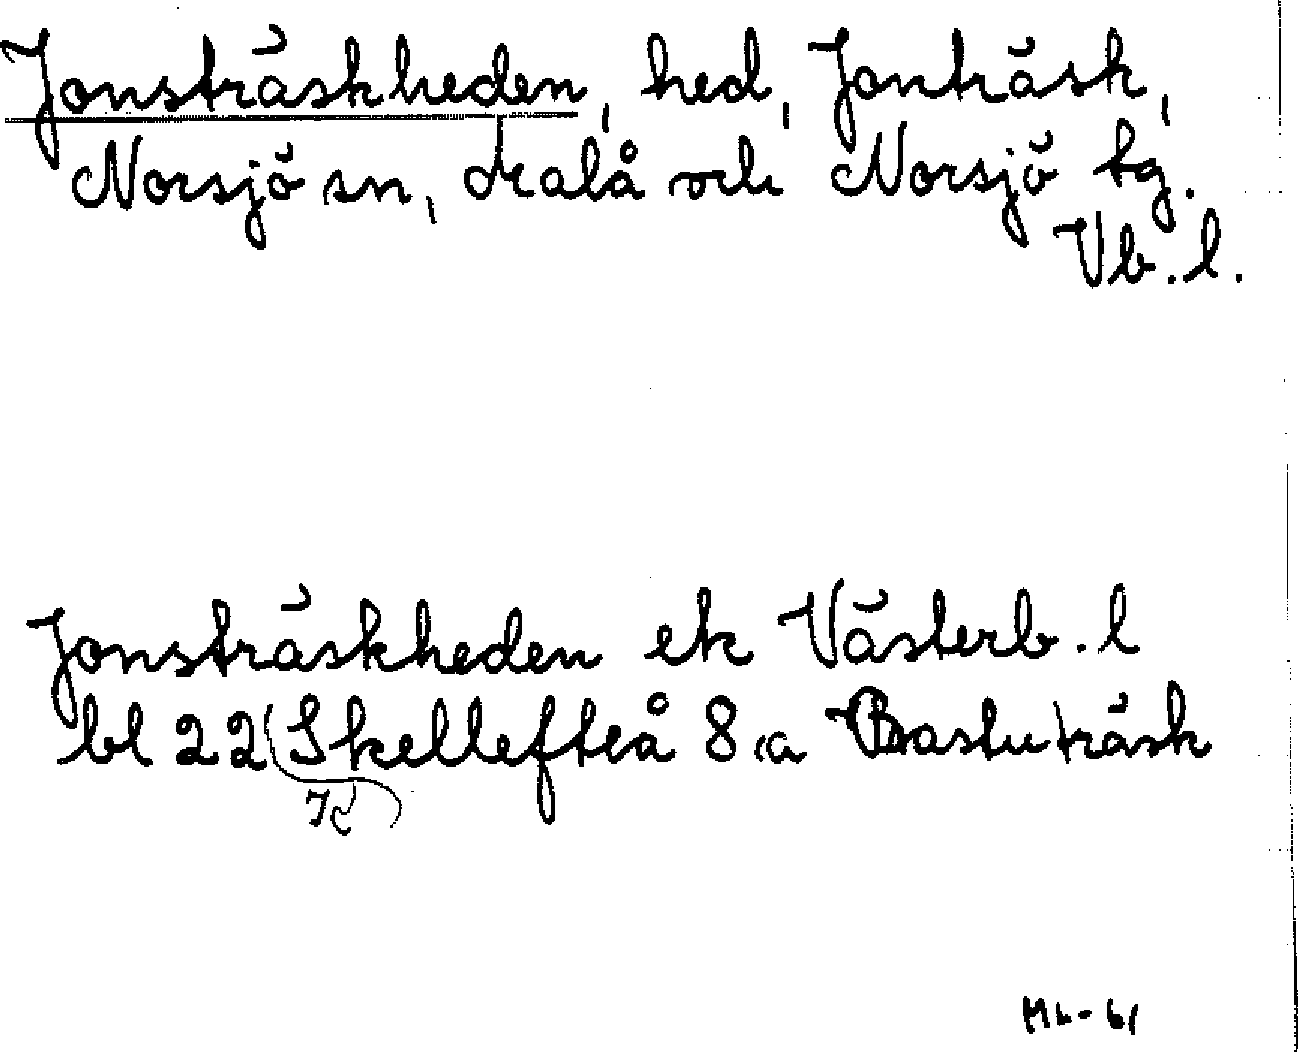 Jonsträskheden, hed, Jonträsk,
Norsjö sn, Malå och Norsjö tg.
Vb.l.
Jonsträskheden ek Västerb. l
bl 22 Skellefteå 8 a Bastuträsk